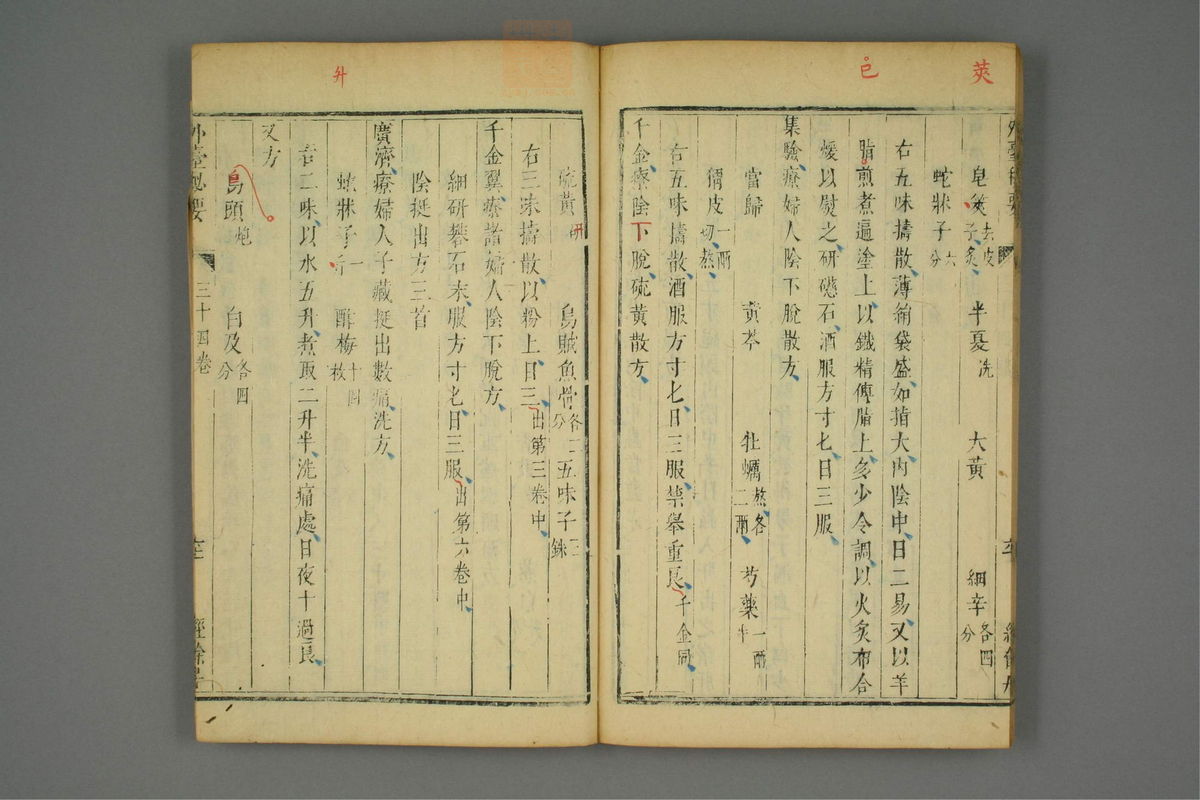 莢
皂莢去皮子炙 半夏洗 大黃 細辛各四分
蛇牀子六分
右五味擣散薄絹袋盛如指大內陰中日二易又以羊
脂煎煮遍塗上以鐵精傅脂上多少令調以火炙布合
煖以熨之研礠石酒服方寸匕日三服
集驗療婦人陰下脫散方
當歸 黃芩 牡蠣熬各二兩 芍藥一兩半
猬皮一兩切熬
右五味擣散酒服方寸匕日三服禁舉重良千金同
千金療陰下脫硫黃散方
硫黃研 烏賊魚骨各二分 五味子三銖
右三味擣散以粉上日三出第三卷中
千金翼療諸婦人陰下脫方
細研礬石末服方寸匕日三服出第六卷中
陰挺出方三首
廣濟療婦人子藏挺出數痛洗方
蛇牀子一 酢梅十四枚
右二味以水五升煮取二升半洗痛處日夜十過良
升
又方
烏頭炮 白及各四分
外臺秘要 三十四卷